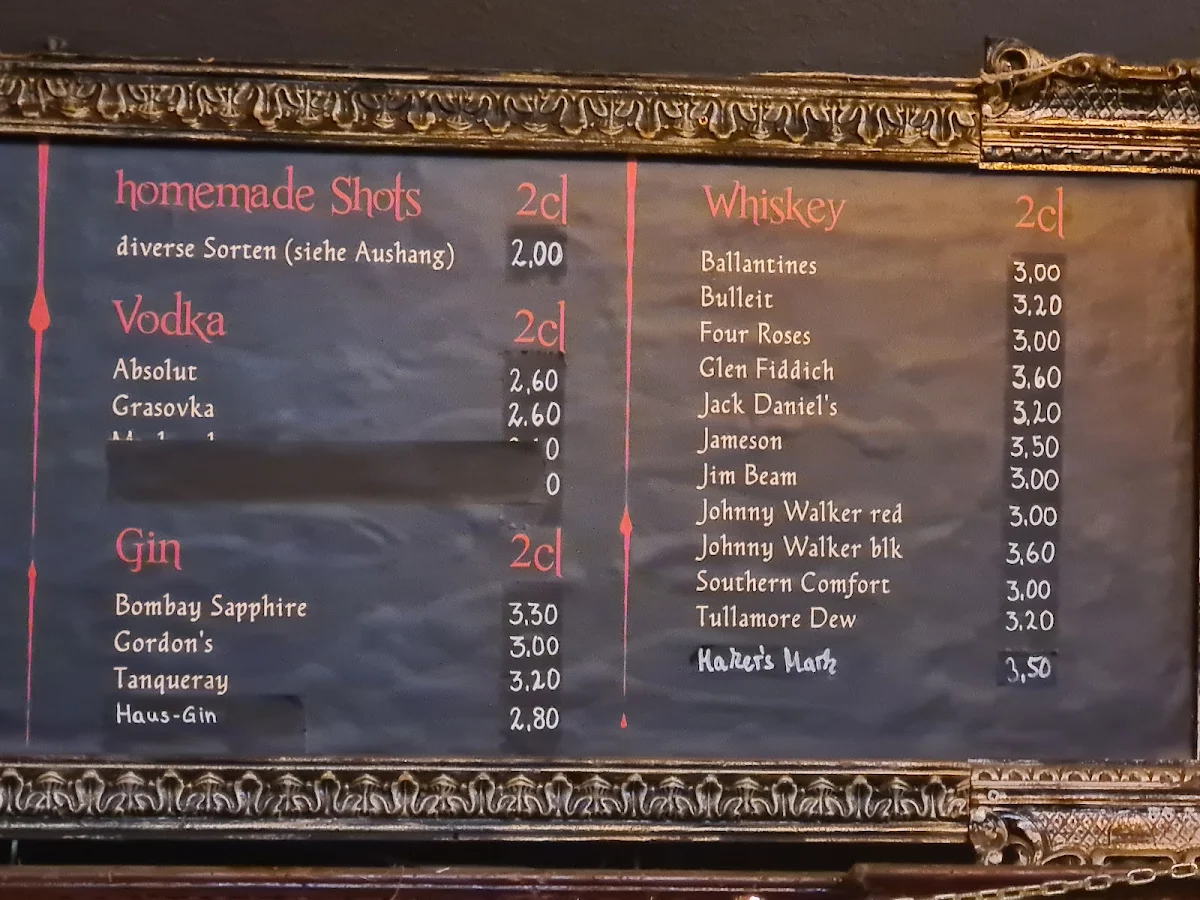 homemade Shots 2cl
diverse Sorten (siehe Aushang) 2,00
Vodka 2cl
Absolut 2,60
Grasovka 2,60
0
0
Gin 2cl
Bombay Sapphire 3,30
Gordon's 3,00
Tanqueray 3,20
Haus-Gin 2,80
Whiskey 2cl
Ballantines 3,00
Bulleit 3,20
Four Roses 3,00
Glen Fiddich 3,60
Jack Daniel's 3,20
Jameson 3,50
Jim Beam 3,00
Johnny Walker red 3,00
Johnny Walker blk 3,60
Southern Comfort 3,00
Tullamore Dew 3,20
Maker's Mark 3,50